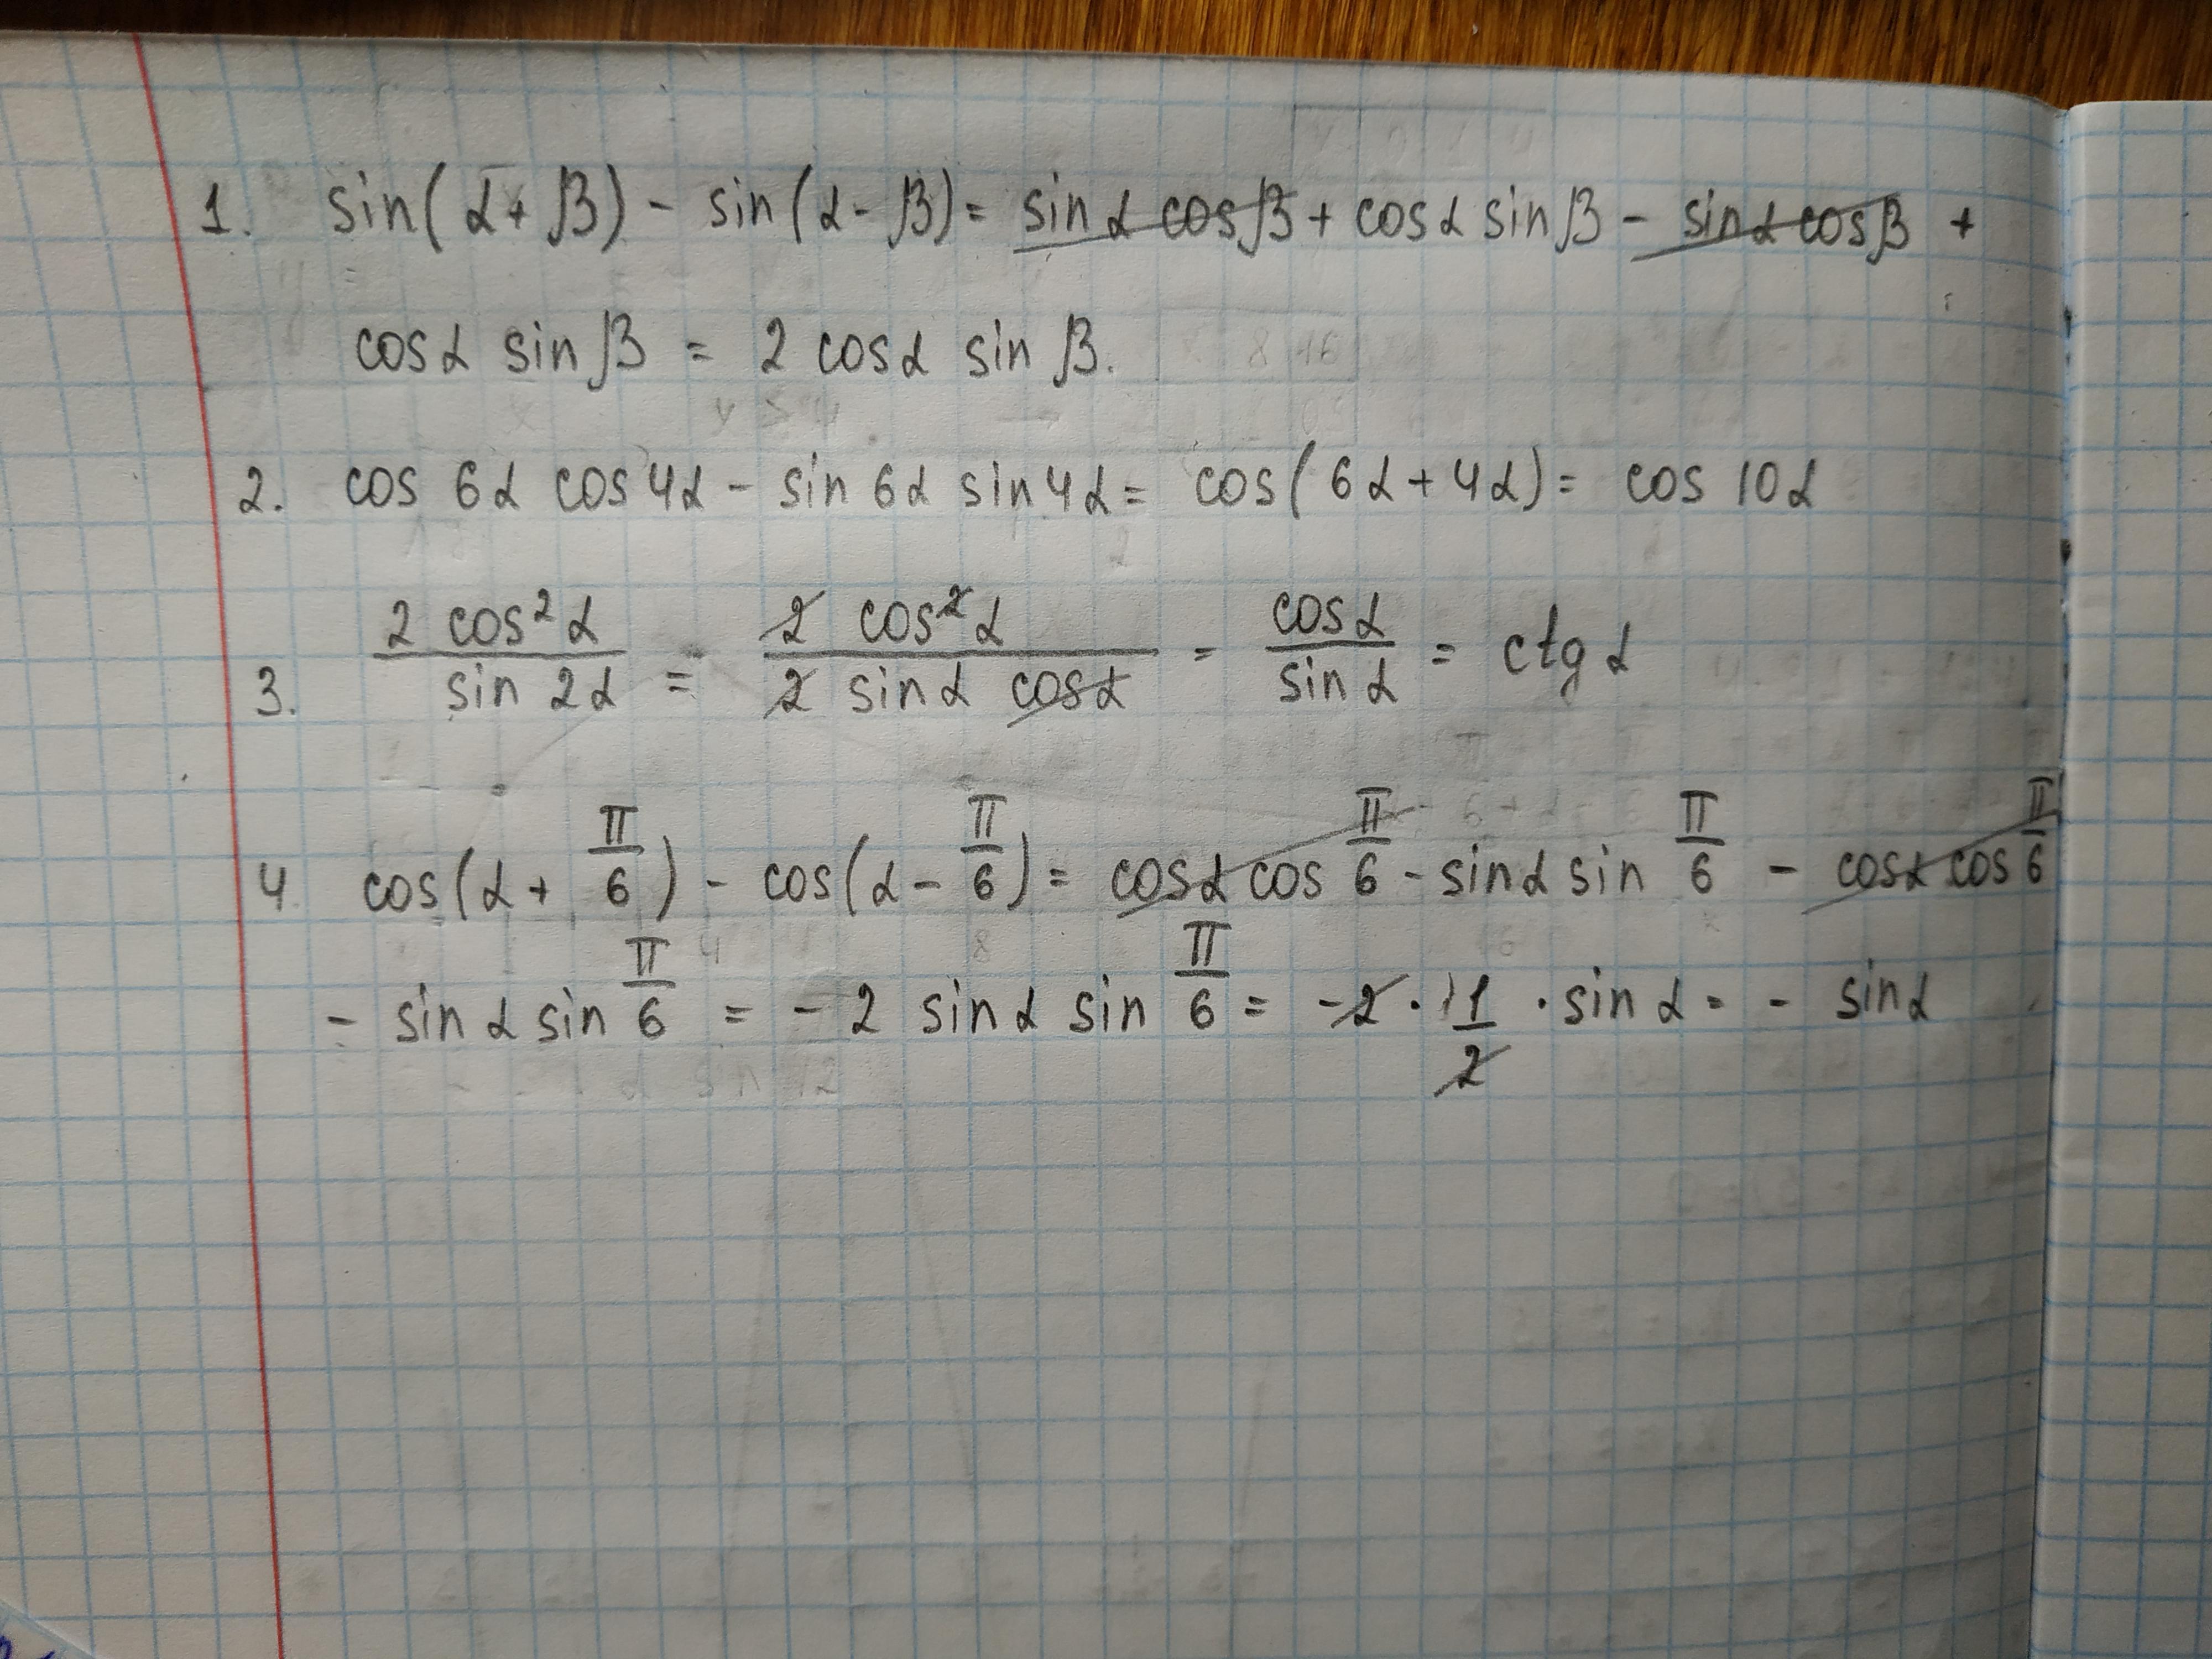 1. sin(α+β) - sin(α-β) = sinα cosβ + cosα sinβ - sinα cosβ +
cosα sinβ = 2 cosα sinβ.
2. cos 6α cos 4α - sin 6α sin 4α = cos(6α+4α) = cos 10α
3. 2 cos²α / sin 2α = 2 cos²α / 2 sinα cosα = cosα / sinα = ctg α
4 cos(α + π/6) - cos(α - π/6) = cosα cos π/6 - sinα sin π/6 - cosα cos π/6
- sinα sin π/6 = - 2 sinα sin π/6 = -2 · 1/2 · sinα = - sinα